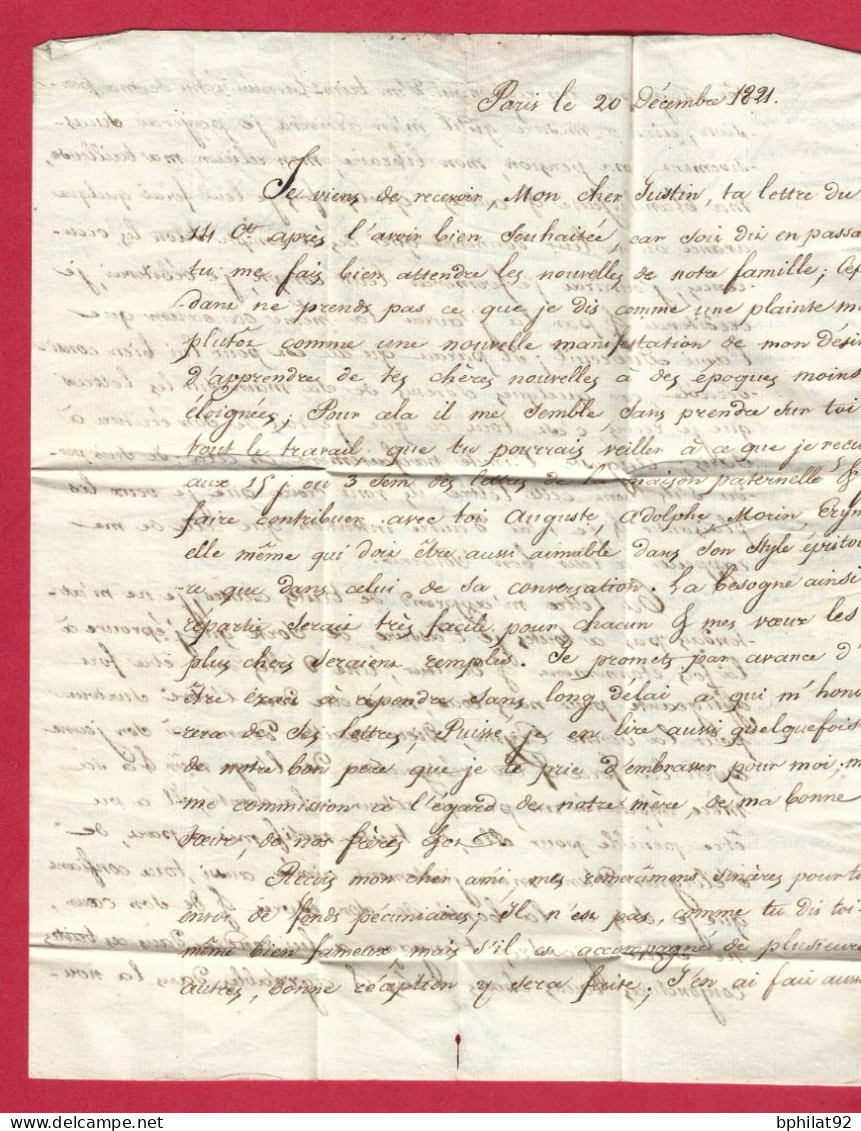 Paris le 20 Décembre 1821.
Je viens de recevoir, Mon cher Justin, ta lettre du
14 Ct après l'avoir bien souhaitée, car soit dit en passa
tu me fais bien attendre les nouvelles de notre famille; Cep
dant ne prends pas ce que je dis comme une plainte m
plutôt comme une nouvelle manifestation de mon désir
d'apprendre de tes chères nouvelles à des époques moins
éloignées; Pour cela il me semble, sans prendre sur toi
tout le travail que tu pourrais veiller à ce que je reçu
aux 15 j ou 3 sem des lettres de la maison paternelle &
faire contribuer avec toi Auguste, Adolphe Morin,
elle même qui doit être aussi aimable dans son style épistol
re que dans celui de sa conversation. La besogne ainsi
repartie serait très facile pour chacun & mes vœux les
plus chers seraient remplis. Je promets par avance d'
être exact à répondre sans long delai à qui m'hono
rera de ses lettres, Puissé je en lire aussi quelquefois
de notre bon père que je te prie d'embrasser pour moi; m
me commission à l'égard de notre mère de ma bonne
sœur, de nos frères &c &c
Reçois mon cher ami mes remercîmens sincères pour to
envoi de fonds pécuniaires, il n'est pas, comme tu dis toi
même bien fameux, mais s'il est accompagné de plusieurs
autres, bonne réception y sera faite; J'en ai fait aussi
bphilat92